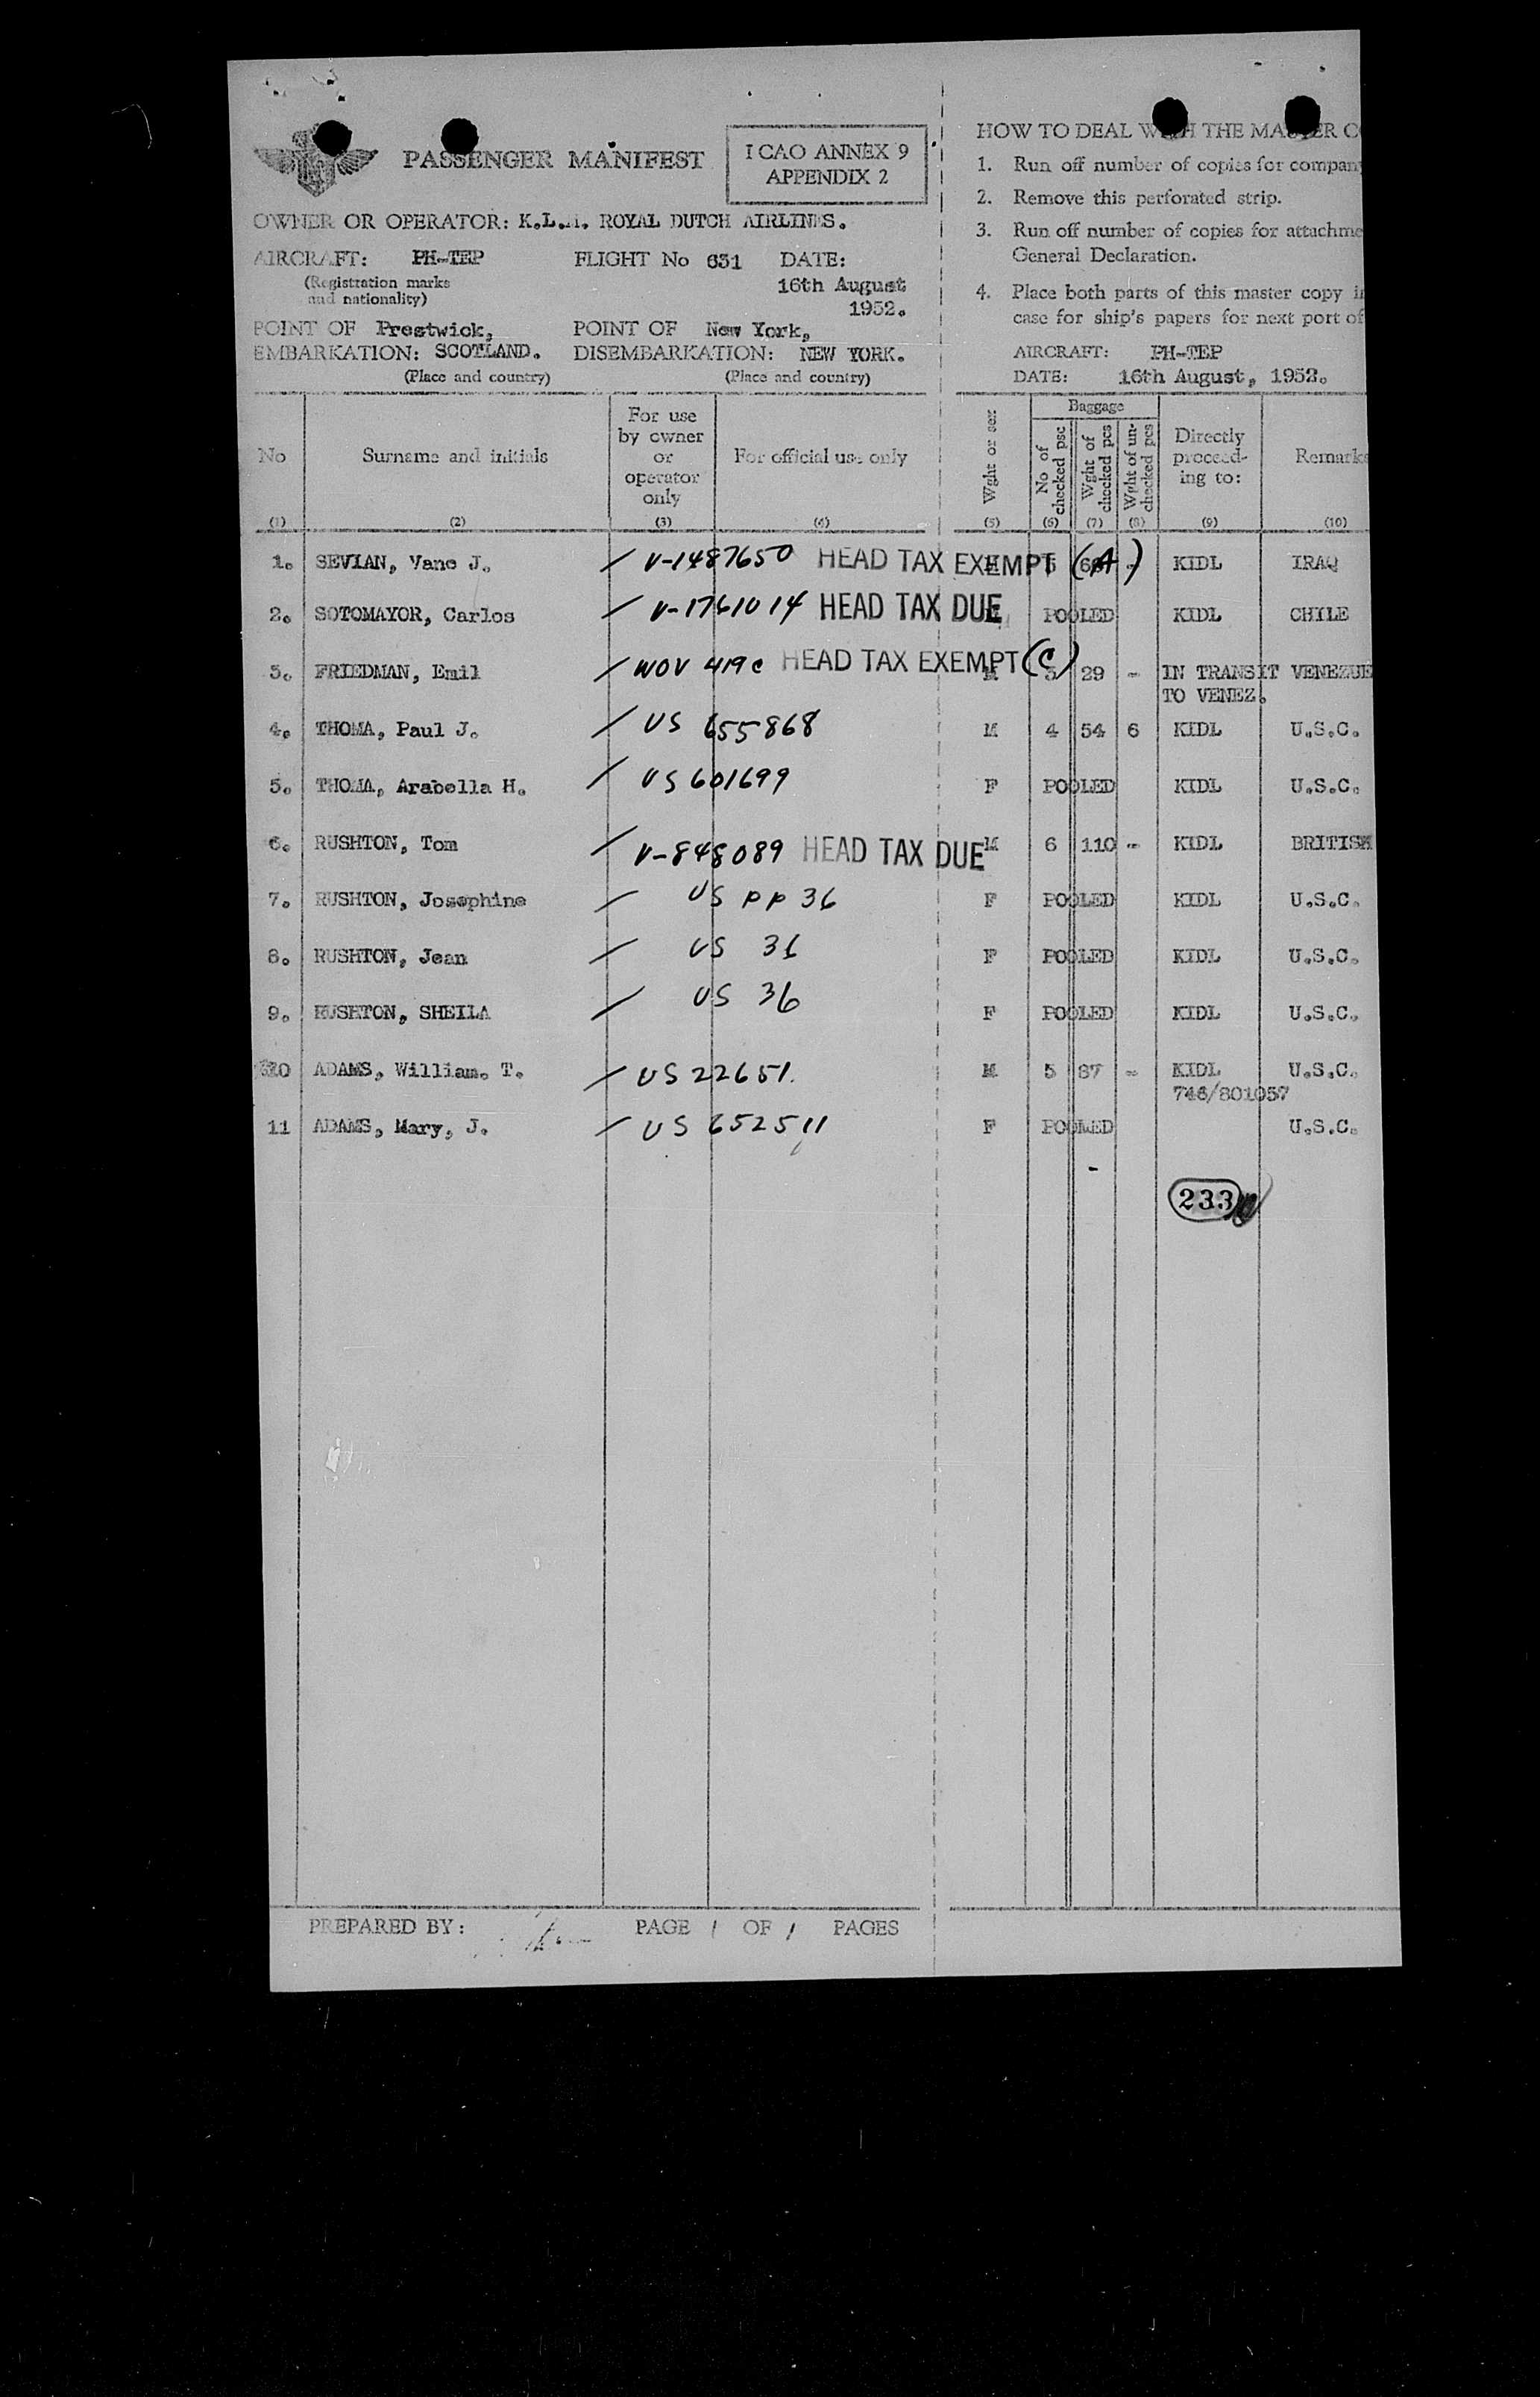 PASSENGER MANIFEST
ICAO ANNEX 9
APPENDIX 2
OWNER OR OPERATOR: K.L.M. ROYAL DUTCH AIRLINES.
AIRCRAFT: PH-TEP FLIGHT No 631 DATE:
(Registration marks
and nationality)
16th August
1952.
POINT OF Prestwick, POINT OF New York,
EMBARKATION: SCOTLAND. DISEMBARKATION: NEW YORK.
(Place and country) (Place and country)
HOW TO DEAL WITH THE MASTER C
1. Run off number of copies for company
2. Remove this perforated strip.
3. Run off number of copies for attachme
General Declaration.
4. Place both parts of this master copy i
case for ship's papers for next port of
AIRCRAFT: PH-TEP
DATE: 16th August, 1952.
No
Surname and initials
For use
by owner
or
operator
only
For official use only
Wght or sex
Baggage
No of
checked psc
Wght of
checked pcs
Wght of un-
checked pcs
Directly
proceed-
ing to:
Remarks
(1) (2) (3) (4) (5) (6) (7) (8) (9) (10)
1. SEVIAN, Vane J. / V-1487650 HEAD TAX EXEMPT (A) KIDL IRAQ
2. SOTOMAYOR, Carlos / V-1761014 HEAD TAX DUE POOLED KIDL CHILE
3. FRIEDMAN, Emil / WOV 419c HEAD TAX EXEMPT (C) M 3 29 - IN TRANSIT VENEZUE
TO VENEZ.
4. THOMA, Paul J. / US 655868 M 4 54 6 KIDL U.S.C.
5. THOMA, Arabella H. / US 601699 F POOLED KIDL U.S.C.
6. RUSHTON, Tom / V-848089 HEAD TAX DUE M 6 110 - KIDL BRITISH
7. RUSHTON, Josephine / US PP 36 F POOLED KIDL U.S.C.
8. RUSHTON, Jean / US 36 F POOLED KIDL U.S.C.
9. RUSHTON, SHEILA / US 36 F POOLED KIDL U.S.C.
10 ADAMS, William. T. / US 22651. M 5 87 - KIDL U.S.C.
746/801057
11 ADAMS, Mary, J. / US 652511 F POOLED U.S.C.
233
PREPARED BY: PAGE 1 OF 1 PAGES